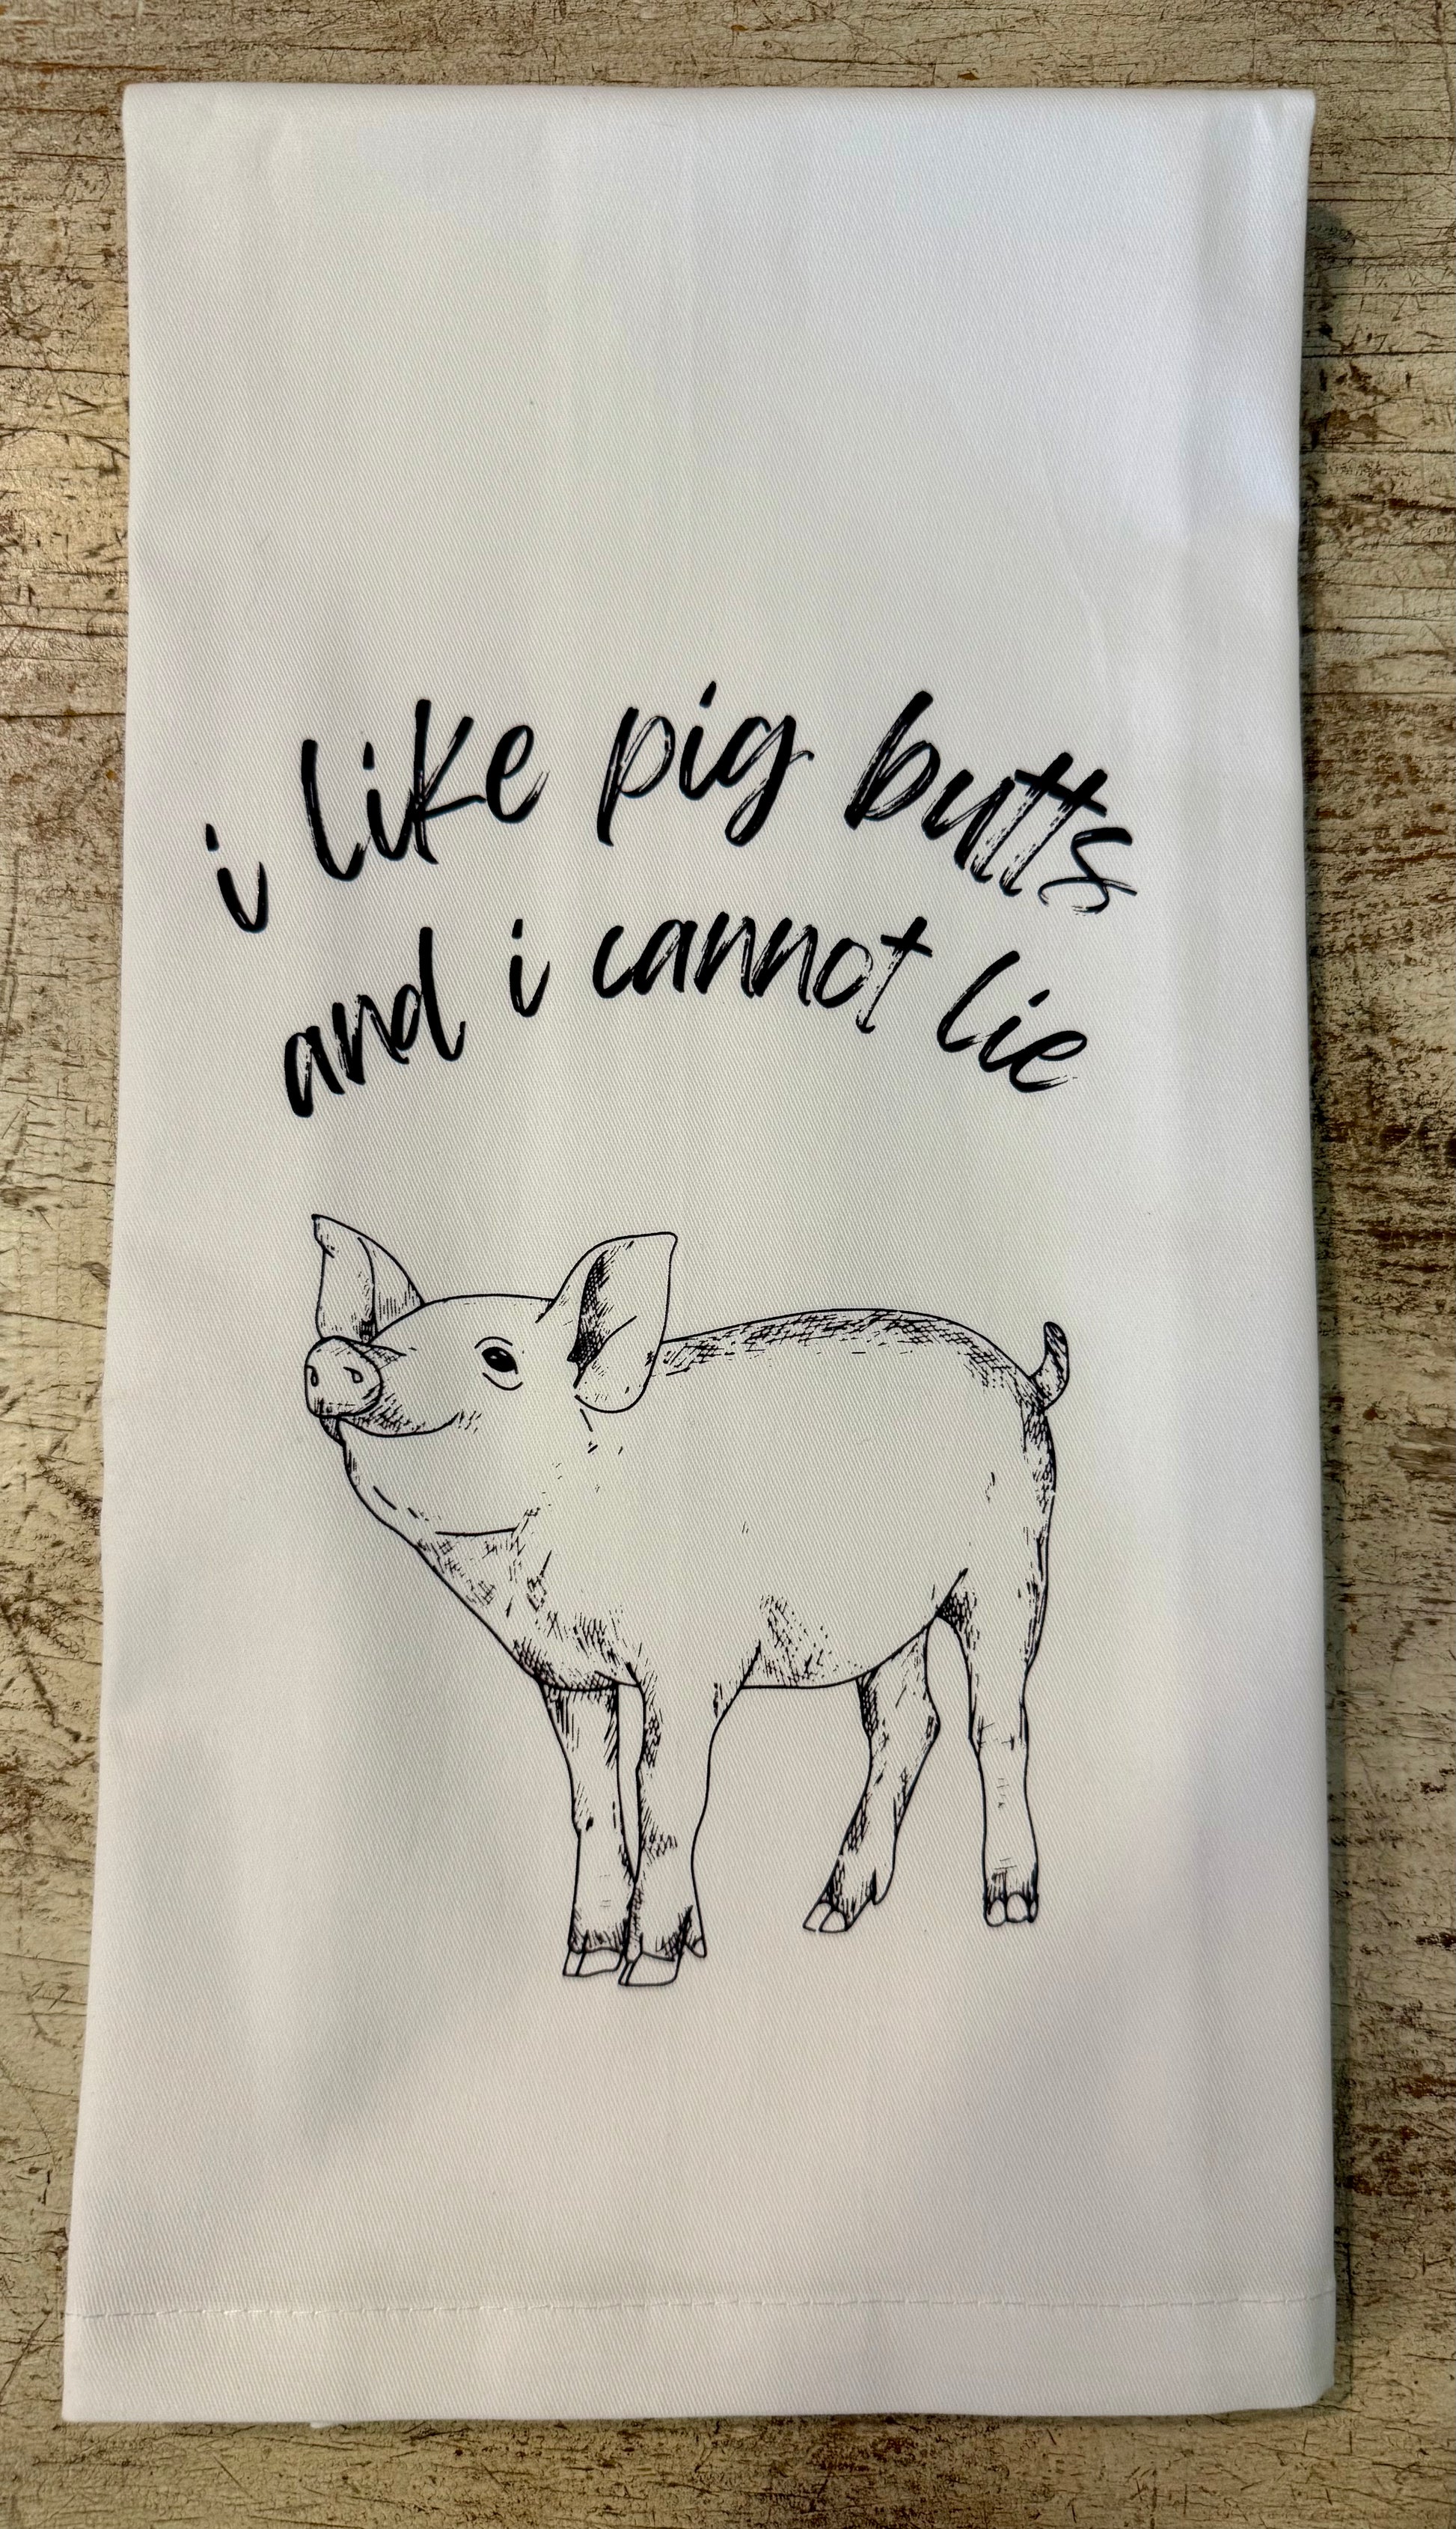 i like pig butts
and i cannot lie